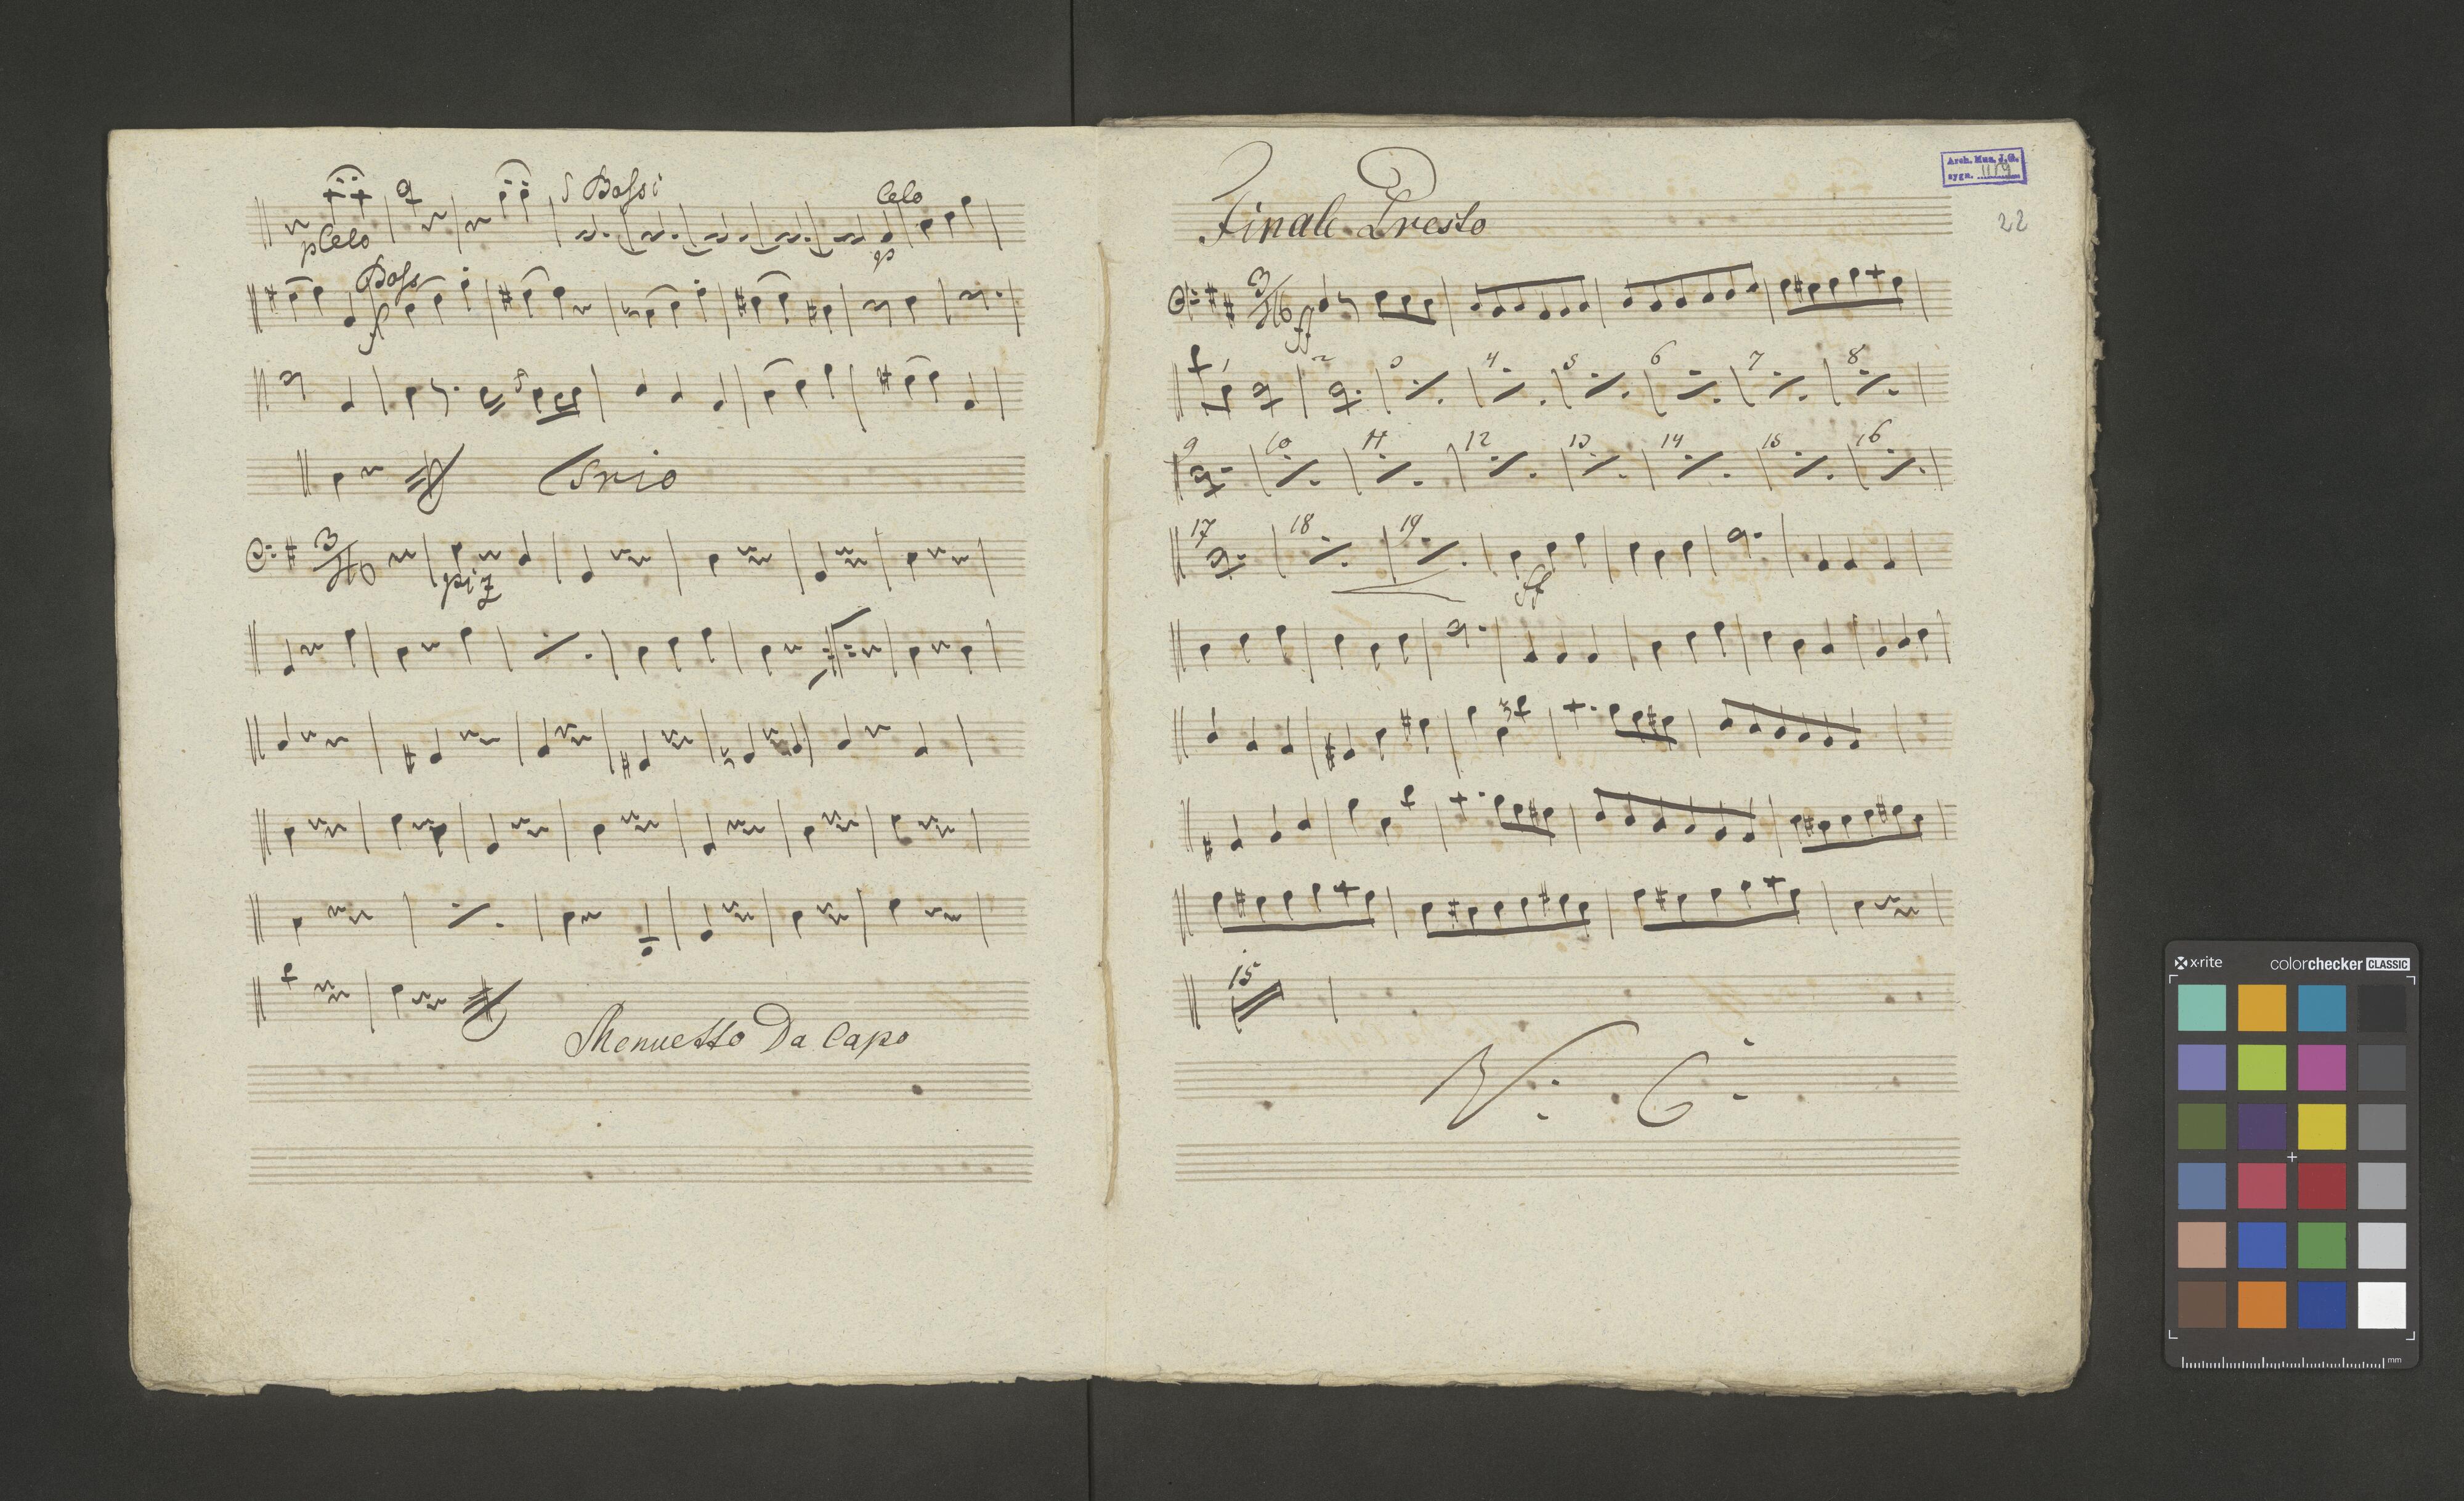 Bassi
Celo
p Celo
Bass
f
Trio
3/4
piz
Menuetto Da Capo
Arch. Mus. J. G.
sygn. 1119
22
Finale Presto
3/4
ff
1 2 3 4 5 6 7 8
9 10 11 12 13 14 15 16
17 18 19
ff
15
x-rite
colorchecker CLASSIC
mm